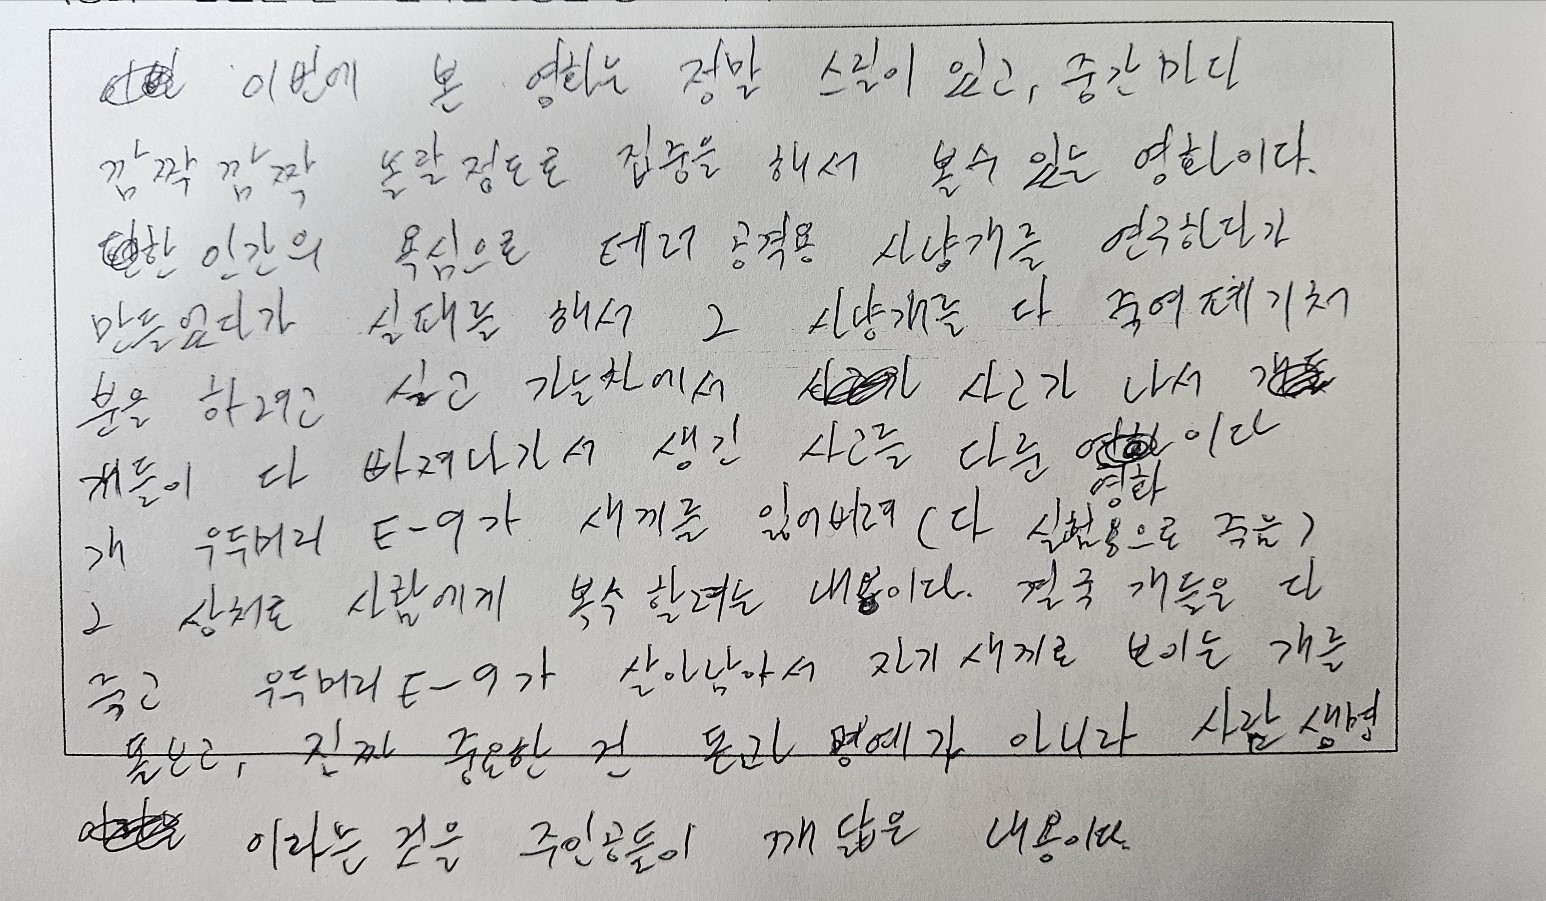 이번에 본 영화는 정말 스릴이 있고, 중간마다
깜짝깜짝 놀랄정도로 집중을 해서 볼수 있는 영화이다.
한 인간의 욕심으로 테러 공격용 사냥개를 연구한다가
만들었다가 실패를 해서 그 사냥개를 다 죽여 폐기처
분을 하려고 싣고 가는차에서 사고가 나서
개들이 다 빠져나가서 생긴 사고를 다룬 영화이다
개 우두머리 E-9가 새끼를 잃어버려 (다 실험용으로 죽음)
그 상처로 사람에게 복수할려는 내용이다. 결국 개들은 다
죽고 우두머리 E-9가 살아남아서 자기 새끼로 보이는 개를
돌보고, 진짜 중요한 건 돈과 명예가 아니라 사람 생명
이라는 것을 주인공들이 깨닮은 내용이다.